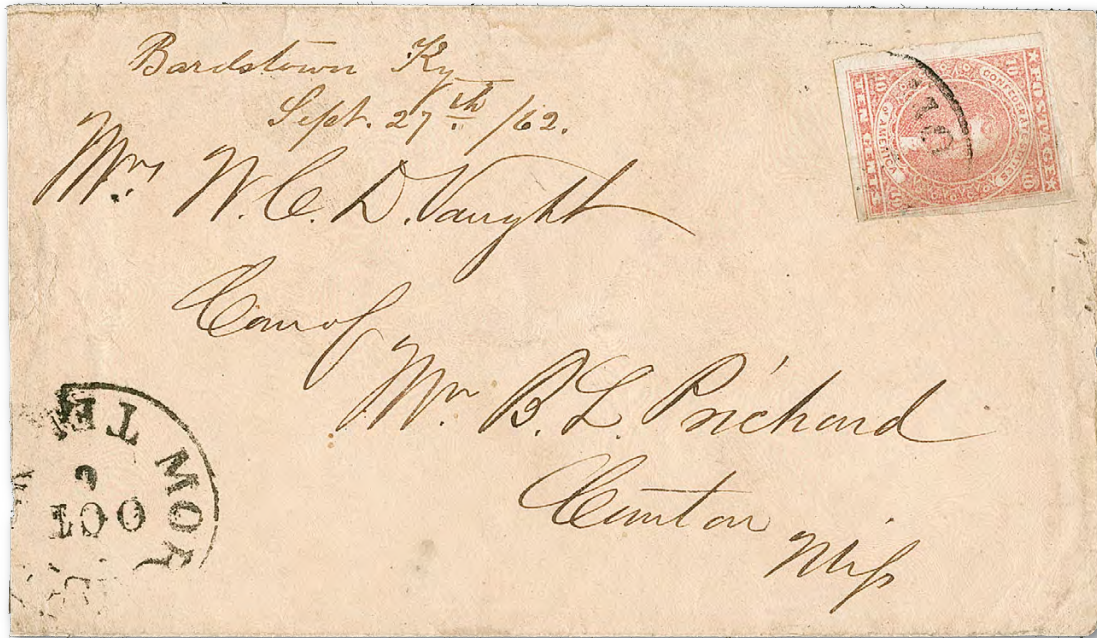 Bardstown Ky
Sept. 27th /62.
Mrs W. C. D. Vaught
Care of
Mr B. L. Prichard
Canton
Miss
POSTAGE
CONFEDERATE STATES
OF AMERICA
TEN CENTS
10
10
10
10
OCT